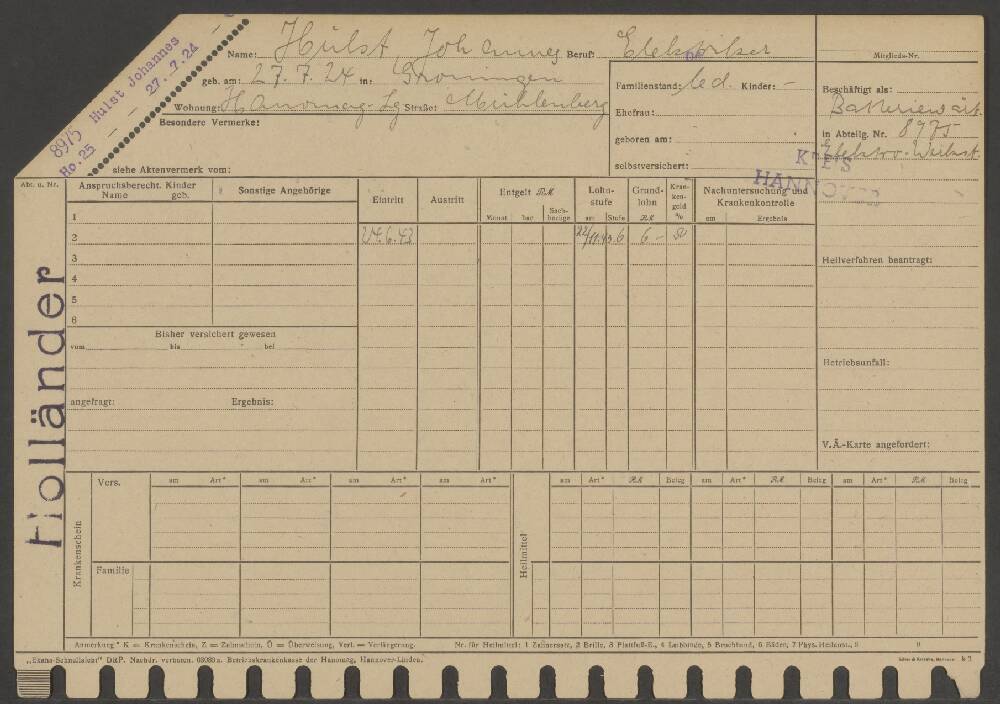 8975 Hulst Johannes
Ho. 25 — — 27. 7. 24
Name: Hülst, Johannes Beruf: Elektriker
geb. am: 27. 7. 24 in: Groningen
Wohnung: Hanomag-Lg Straße: Mühlenberg
Besondere Vermerke:
siehe Aktenvermerk vom:
Familienstand: led. Kinder: —
Ehefrau:
geboren am:
selbstversichert:
Mitglieds-Nr.
Beschäftigt als:
Batteriewärt.
in Abteilg. Nr. 8975
Elektro-Werkst.
HANNO
Holländer
Abt. u. Nr.
Anspruchsberecht. Kinder
Name geb.
Sonstige Angehörige
Eintritt
Austritt
Entgelt RM
Monat bar Sachbezüge
Lohnstufe
am Stufe
Grundlohn
RM
Krankengeld
%
Nachuntersuchung und
Krankenkontrolle
am Ergebnis
1
2 24.6.43 22/11.43 6 6 — 50
3
4
5
6
Heilverfahren beantragt:
Bisher versichert gewesen
vom bis bei
Betriebsunfall:
angefragt: Ergebnis:
V.Ä.-Karte angefordert:
Krankenschein
Vers. am Art* am Art* am Art* am Art*
Familie
Heilmittel
am Art* RM Beleg am Art* RM Beleg am Art* RM Beleg
Anmerkung * K = Krankenschein, Z = Zahnschein, Ü = Überweisung, Verl. = Verlängerung.
Nr. für Heilmittel: 1 Zahnersatz, 2 Brille, 3 Plattfuß-E., 4 Leibbinde, 5 Bruchband, 6 Bäder, 7 Phys. Heilanst., 8 9
Betriebskrankenkasse der Hanomag, Hannover-Linden.